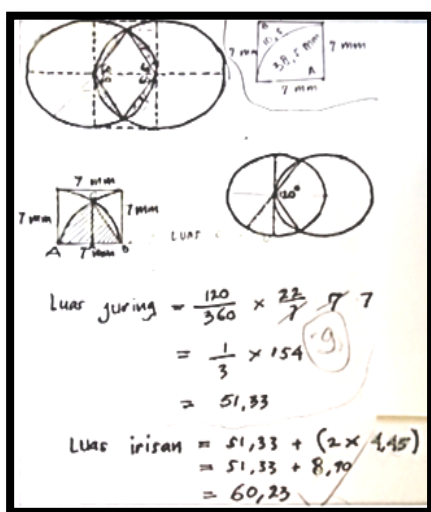 B
10,5
38,5 mm
A
7 mm
7 mm
7 mm
7 mm
7 mm
7 mm
A
7 mm
B
LUAS
120°
Luas juring = 120/360 × 22/7 7 7
= 1/3 × 154
9,
= 51,33
Luas irisan = 51,33 + (2 × 4,45)
= 51,33 + 8,90
= 60,23